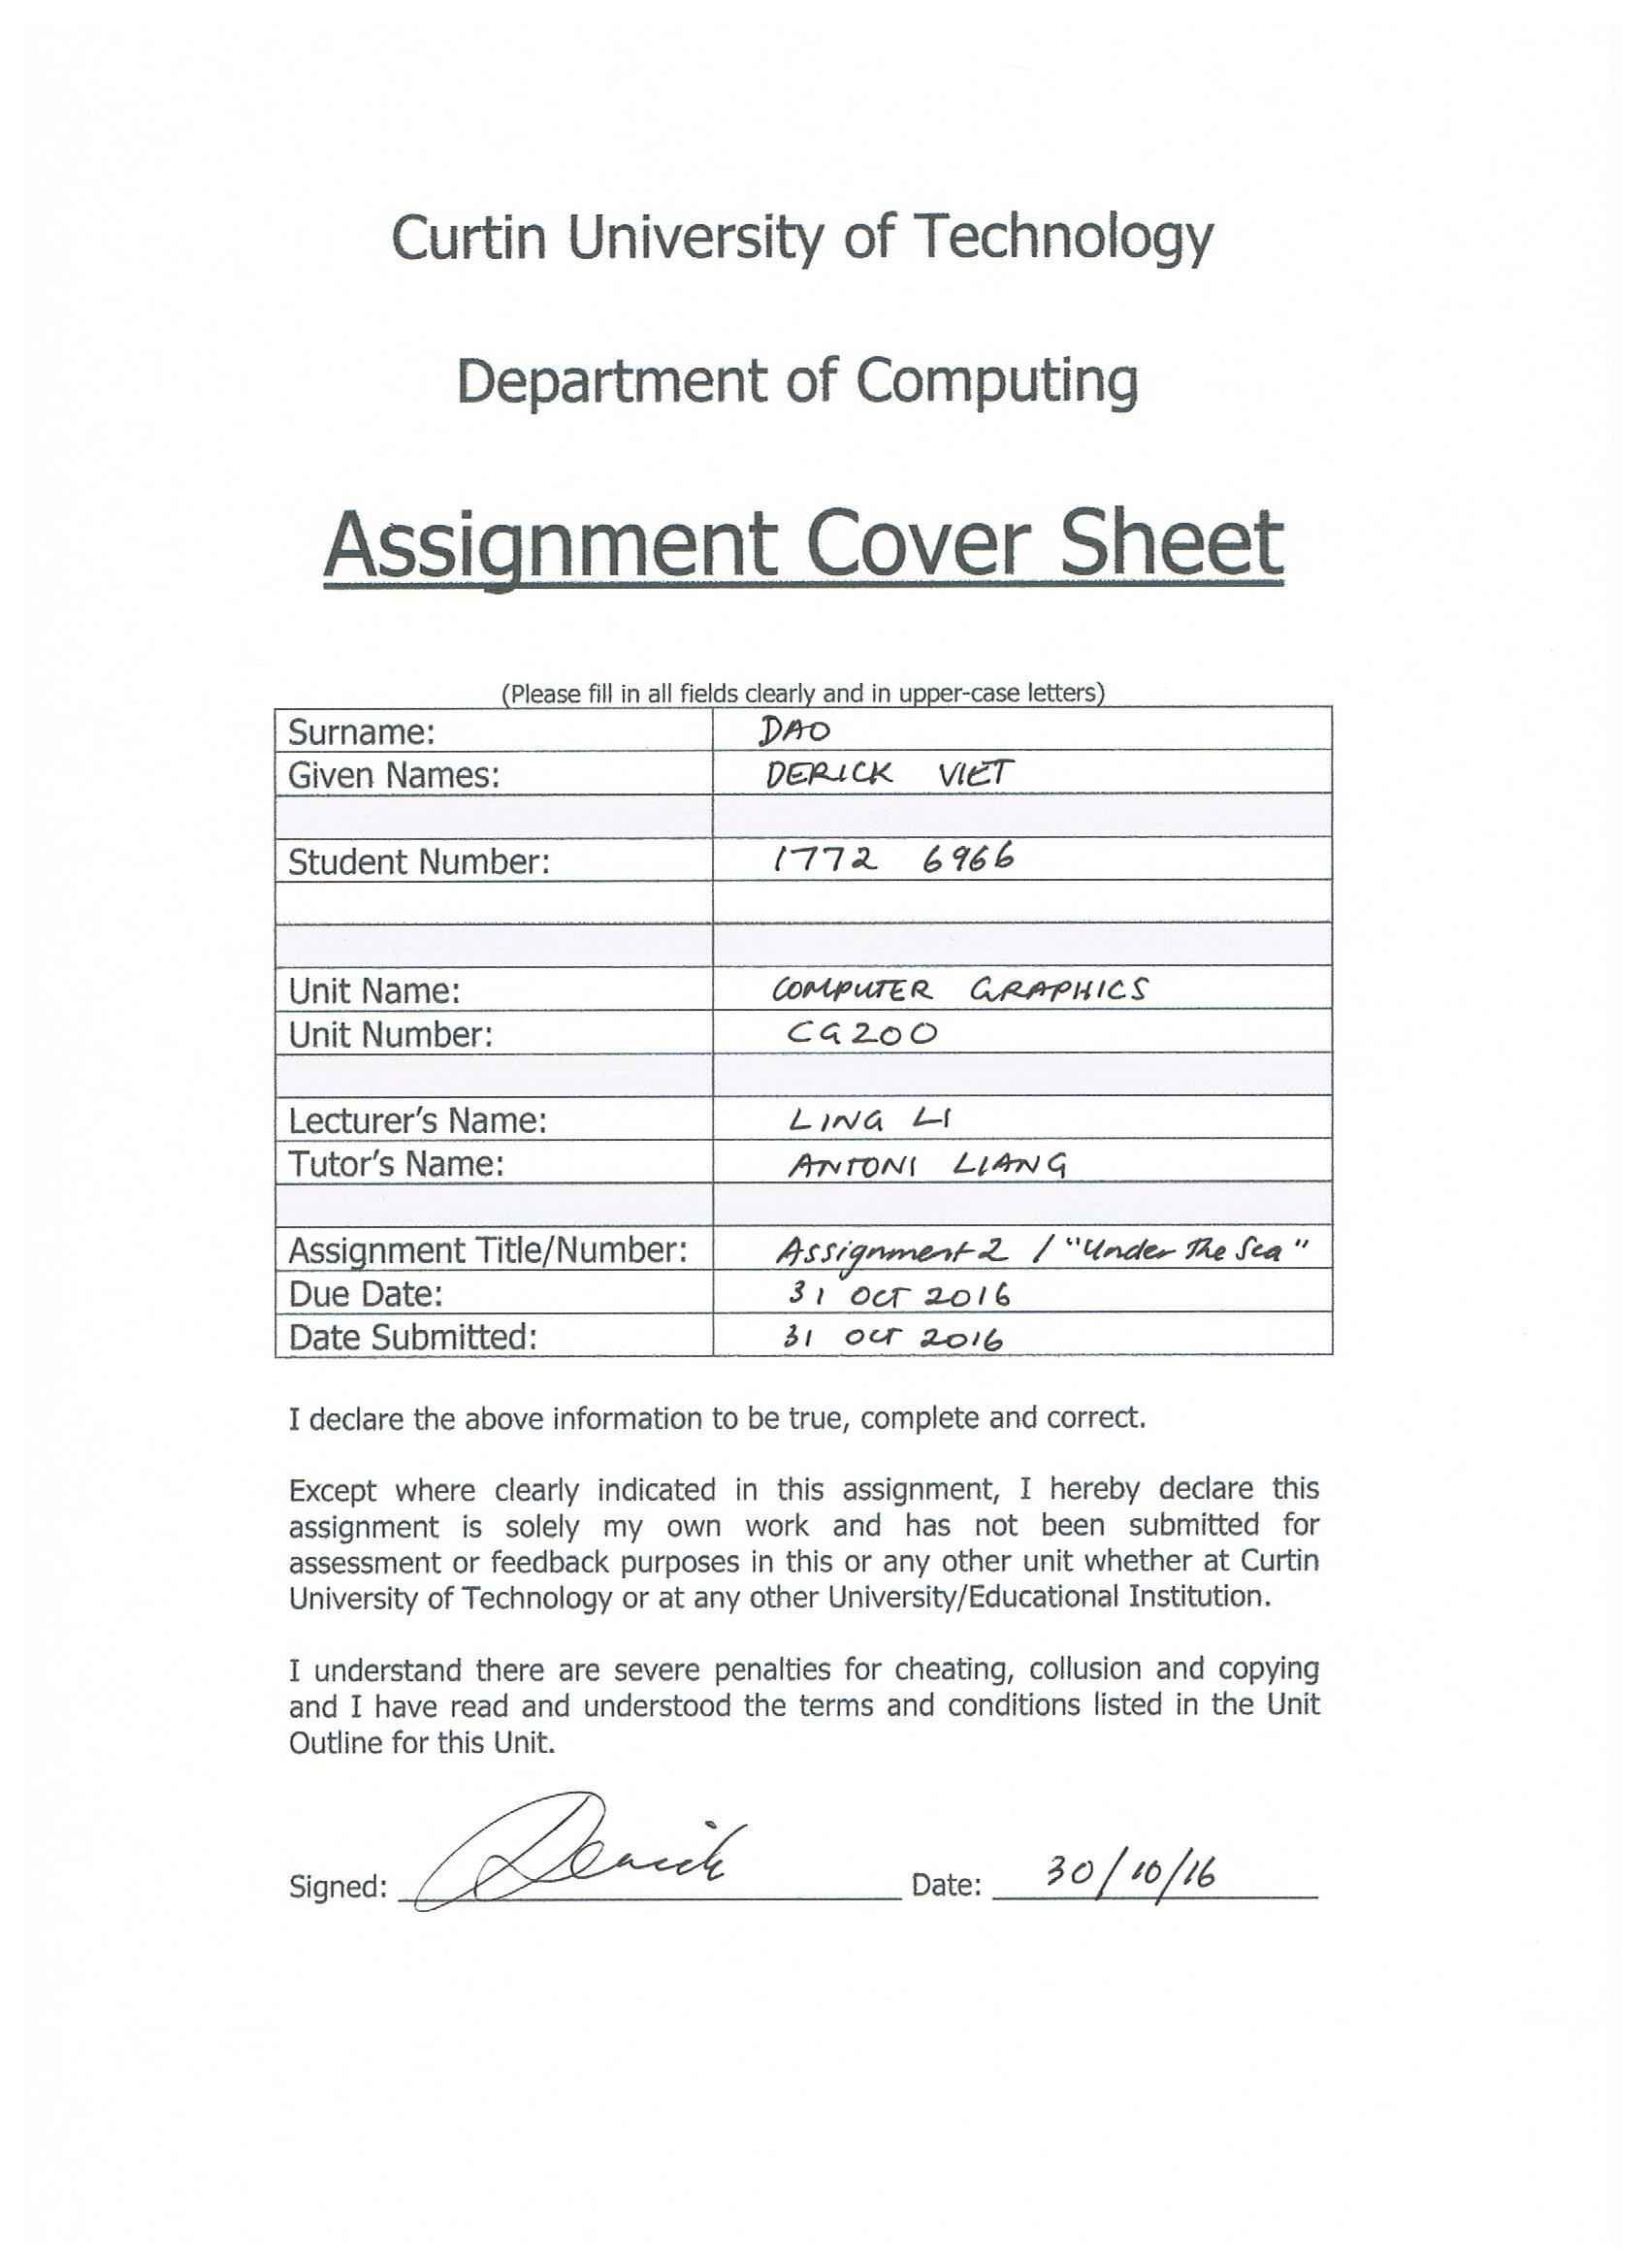 Curtin University of Technology
Department of Computing
Assignment Cover Sheet
(Please fill in all fields clearly and in upper-case letters)
Surname: DAO
Given Names: DERICK VIET
Student Number: 1772 6966
Unit Name: COMPUTER GRAPHICS
Unit Number: CG200
Lecturer's Name: LING LI
Tutor's Name: ANTONI LIANG
Assignment Title/Number: Assignment 2 / "Under The Sea"
Due Date: 31 OCT 2016
Date Submitted: 31 OCT 2016
I declare the above information to be true, complete and correct.
Except where clearly indicated in this assignment, I hereby declare this
assignment is solely my own work and has not been submitted for
assessment or feedback purposes in this or any other unit whether at Curtin
University of Technology or at any other University/Educational Institution.
I understand there are severe penalties for cheating, collusion and copying
and I have read and understood the terms and conditions listed in the Unit
Outline for this Unit.
Signed: Derick Date: 30/10/16